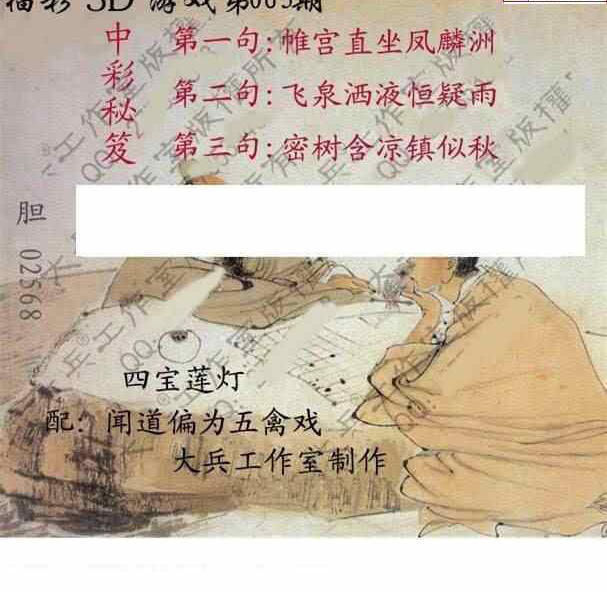 福彩 3D 游戏第003期
中彩秘笈
第一句:帷宫直坐凤麟洲
第二句:飞泉洒液恒疑雨
第三句:密树含凉镇似秋
胆 02568
四宝莲灯
配: 闻道偏为五禽戏
大兵工作室制作